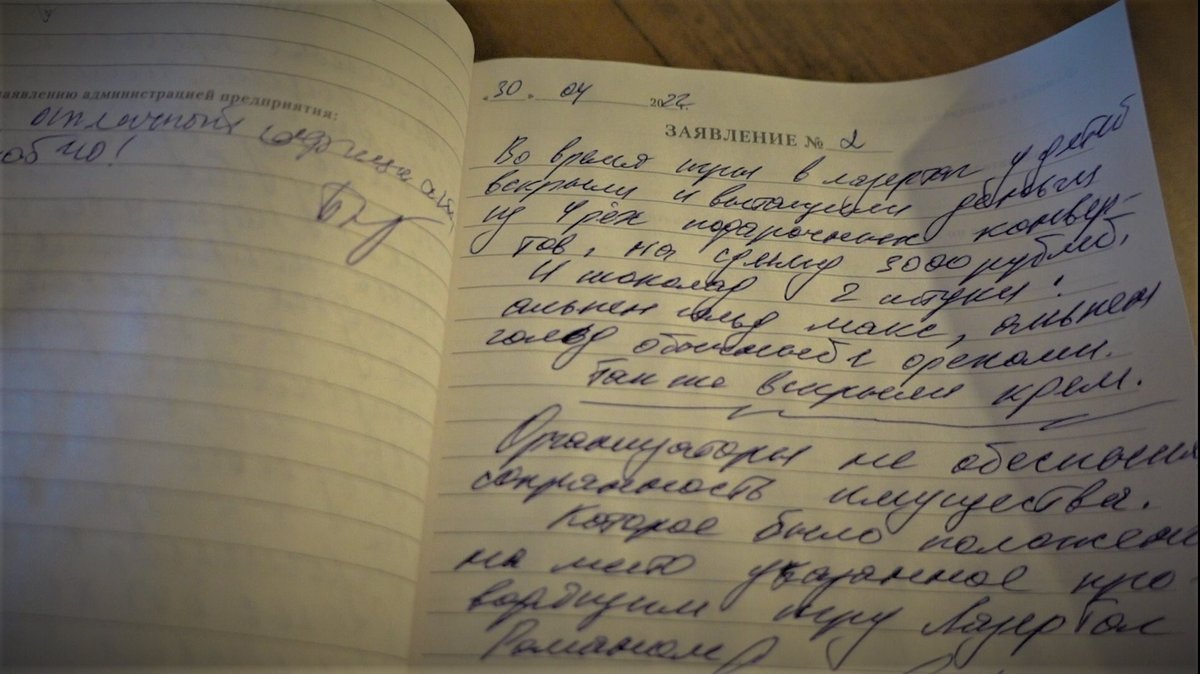 заявлению администрацией предприятия:
отличный
30. 04 2022г.
ЗАЯВЛЕНИЕ № 2
Во время игры в лазертаг у детей
вскрыли и вытащили деньги
из трёх подарочных конвер-
тов, на сумму 3000 рублей,
И шоколад 2 штуки!
альпен гольд макс, альпен
гольд обычный с орехами.
Так же вскрыли крем.
Организаторы не обеспечили
сохранность имущества.
Которое было положено
на место указанное про-
водящим игру Лазертаг
Романом